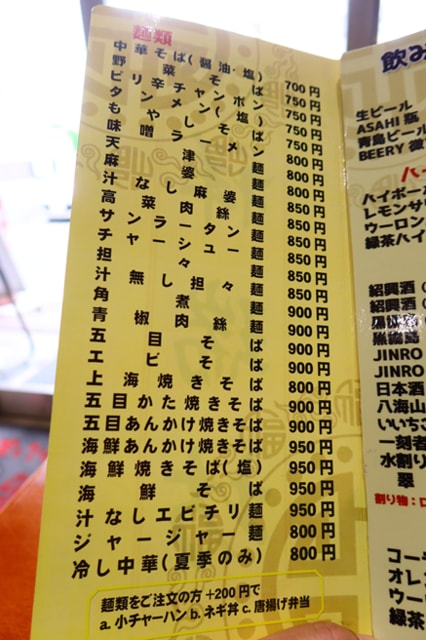 麺類
中華そば(醤油・塩) 700円
野菜そば 750円
ピリ辛チャンポン 750円
タンメン 750円
もやしそば 750円
味噌ラーメン 800円
天津麺 800円
麻婆麺 800円
汁なし麻婆麺 850円
高菜肉絲麺 850円
サンラータンメン 850円
チャーシューメン 850円
担々麺 850円
汁無し担々麺 850円
角煮麺 900円
青椒肉絲麺 900円
五目そば 900円
エビそば 900円
上海焼きそば 800円
五目かた焼きそば 900円
五目あんかけ焼きそば 900円
海鮮あんかけ焼きそば 950円
海鮮焼きそば(塩) 950円
海鮮そば 950円
汁なしエビチリ麺 950円
ジャージャー麺 800円
冷し中華(夏季のみ) 800円
麺類をご注文の方 +200円で
a. 小チャーハン b. ネギ丼 c. 唐揚げ弁当
飲み
生ビール
ASAHI 瓶
青島ビール
BEERY 微
ハイ
ハイボール
レモンサワ
ウーロン
緑茶ハイ
紹興酒(
紹興酒(
黒霧島
JINRO
JINRO
日本酒
八海山
いいちこ
一刻者
水割り
翠
割り物:
コーラ
オレ
ウーロ
緑茶